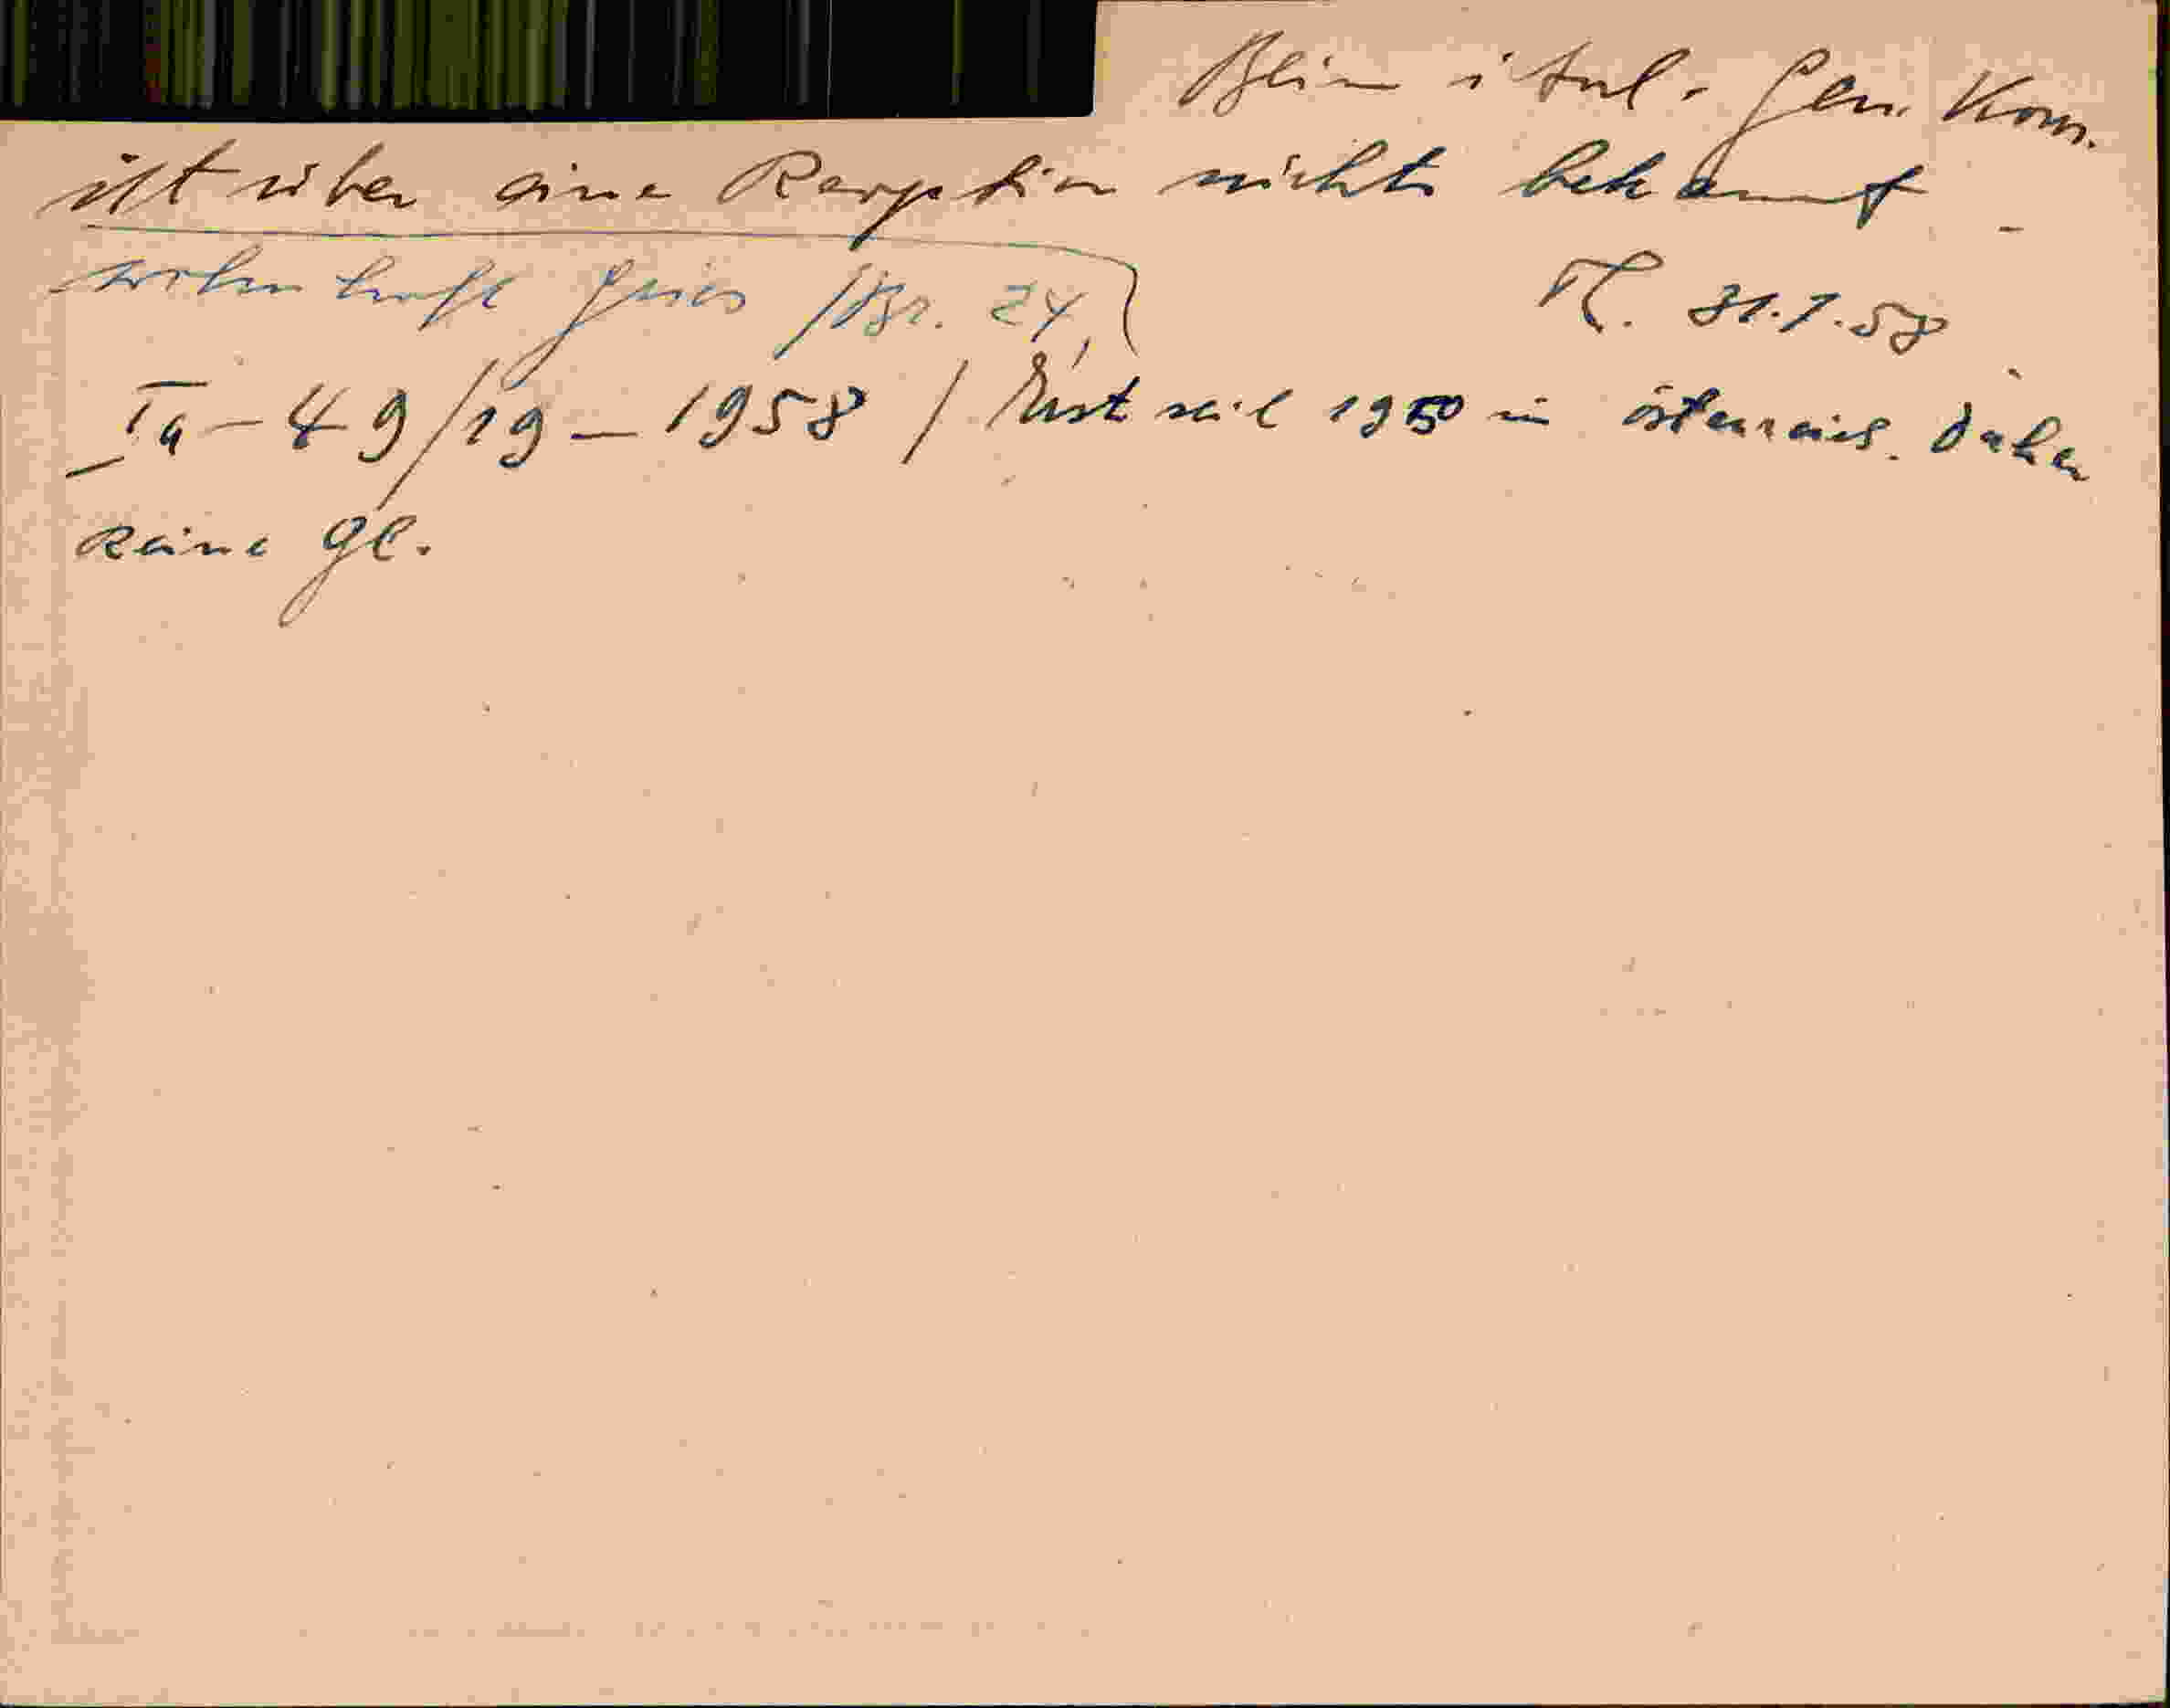 Beim ital. Gen. Kons.
ist über eine Reception nichts bekannt.
wohnhaft Gries /Br. 24, Fl. 31.7.58
Ia-49/19-1958 / Erst seit 1950 in österreich. Daher
keine Gl.